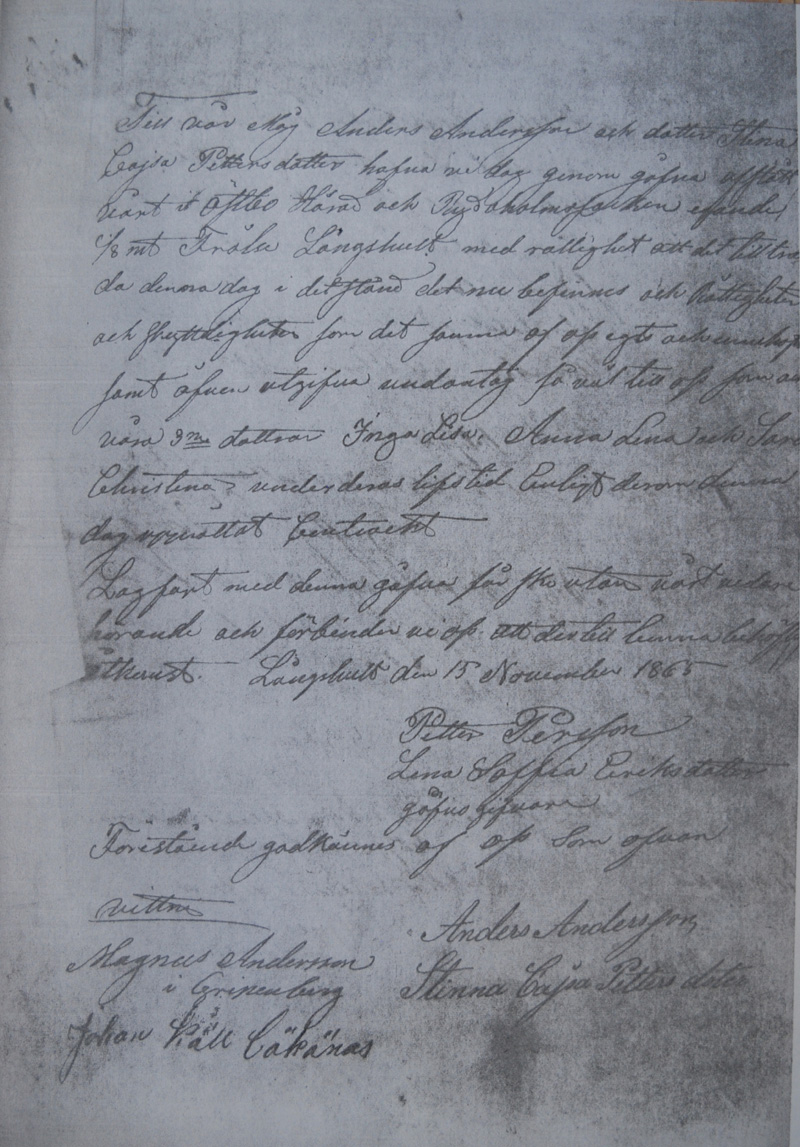 Till vår Måg Anders Andersson och dotter Stina
Cajsa Pettersdotter hafva vi dag genom gåfva
vårt i Östbo Härad och Rydaholms Socken egande
1/8 mt Fräla Långshult med rättighet att det tillträ
da denna dag i det stånd det nu befinnes och Rättigheter
och skylldigheter som det samma af oss egts och
samt äfven utgifva undantag så väl till oss som
våra 3ne döttrar Inga Lisa, Anna Lena och
Christina, under deras lifstid Enligt derom denna
dag upprättat Contract
Lagfart med denna gåfva får ske utan vårt vidare
hörande och förbinder vi oss att dertill lemna
åtkomst. Långshult den 15 November 1865
Petter Persson
Lena Soffia Eriksdotter
gåfvogifvare
Förestående godkännes af oss Som ofvan
vittne
Anders Andersson
Magnus Andersson
Stinna Cajsa Petters doter
i
Johan Käll